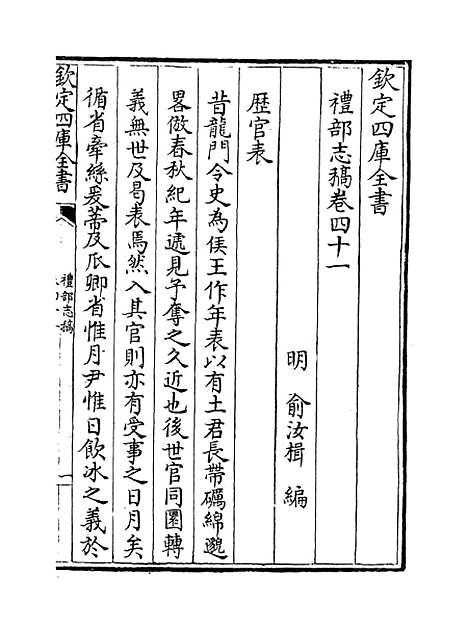 欽定四庫全書
禮部志稿卷四十一
明 俞汝楫 編
歴官表
昔龍門令史為侯王作年表以有土君長帶礪綿邈
畧倣春秋紀年遞見予奪之久近也後世官同圜轉
義無世及曷表焉然入其官則亦有受事之日月矣
循省牽絲爰蒂及瓜卿省惟月尹惟日飲冰之義於
欽定四庫全書
禮部志稿